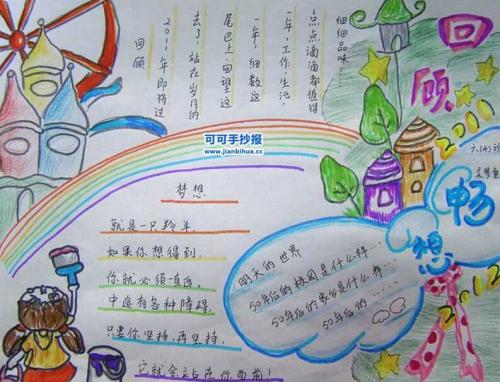 回顾
2011年即将过
去了,站在岁月的
尾巴上,回望这
一年,细数这
一年,工作,生活,
点点滴滴都值得
细细品味。
回顾
2011
六(4)班
畅想
2012
可可手抄报
www.jianbihua.cc
梦想
就是一只羚羊
如果你想得到,
你就必须追
中途有各种障碍,
只要你坚持、再坚持,
它就会站在你面前!
明天的世界
50年后的校园是什么样...
50年后的家乡是什么样...
50年后的......